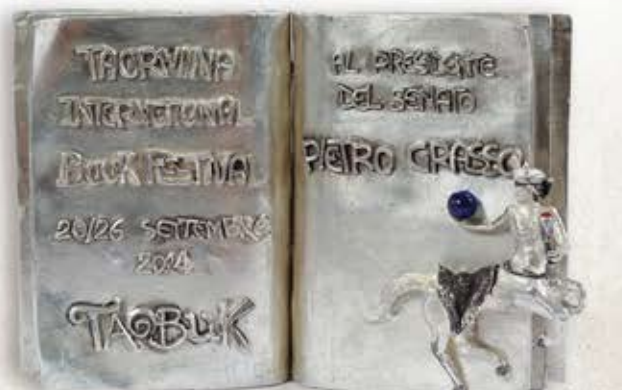 TAORMINA
INTERNATIONAL
BOOK FESTIVAL
20/26 SETTEMBRE
2014
TAOBUK
AL PRESIDENTE
DEL SENATO
PIETRO GRASSO